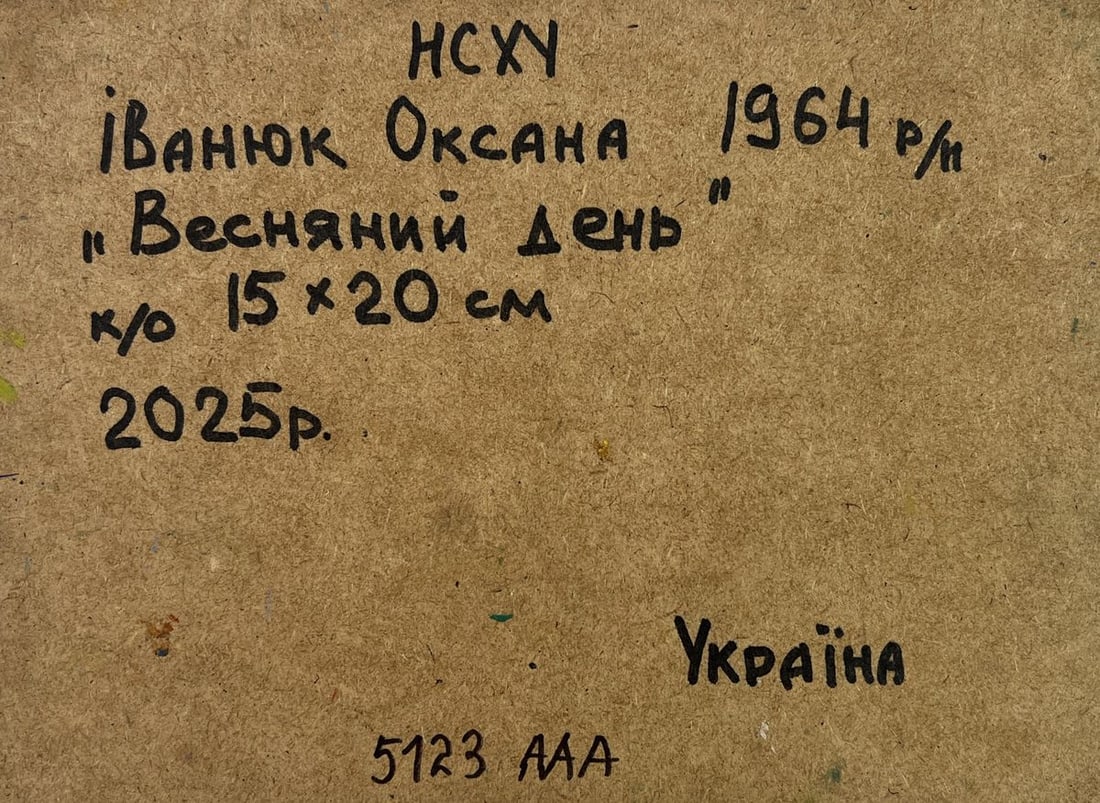 НСХУ
Іванюк Оксана 1964 р/н
„Весняний день"
к/о 15×20 см
2025р.
Україна
5123 ААА